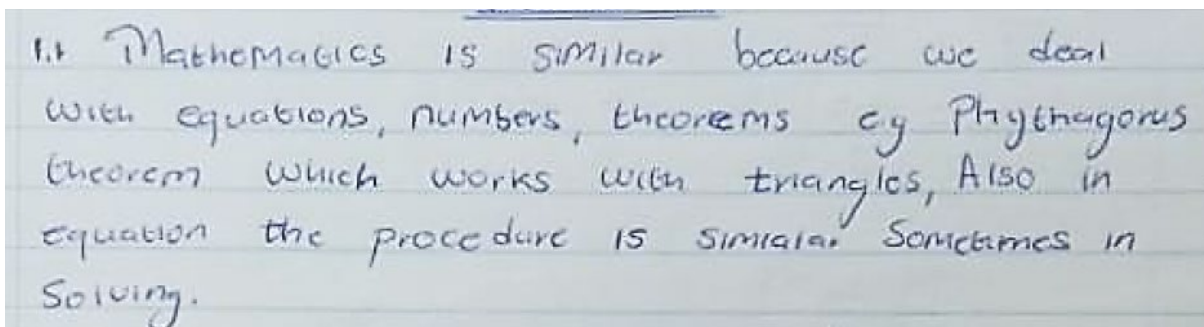 1.1 Mathematics is similar because we deal
with equations, numbers, theorems eg Phythagorus
theorem which works with triangles, Also in
equation the procedure is simialar Sometimes in
Solving.